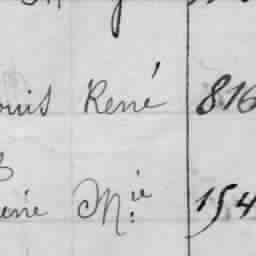 ouis René 816
erie M.ie 154